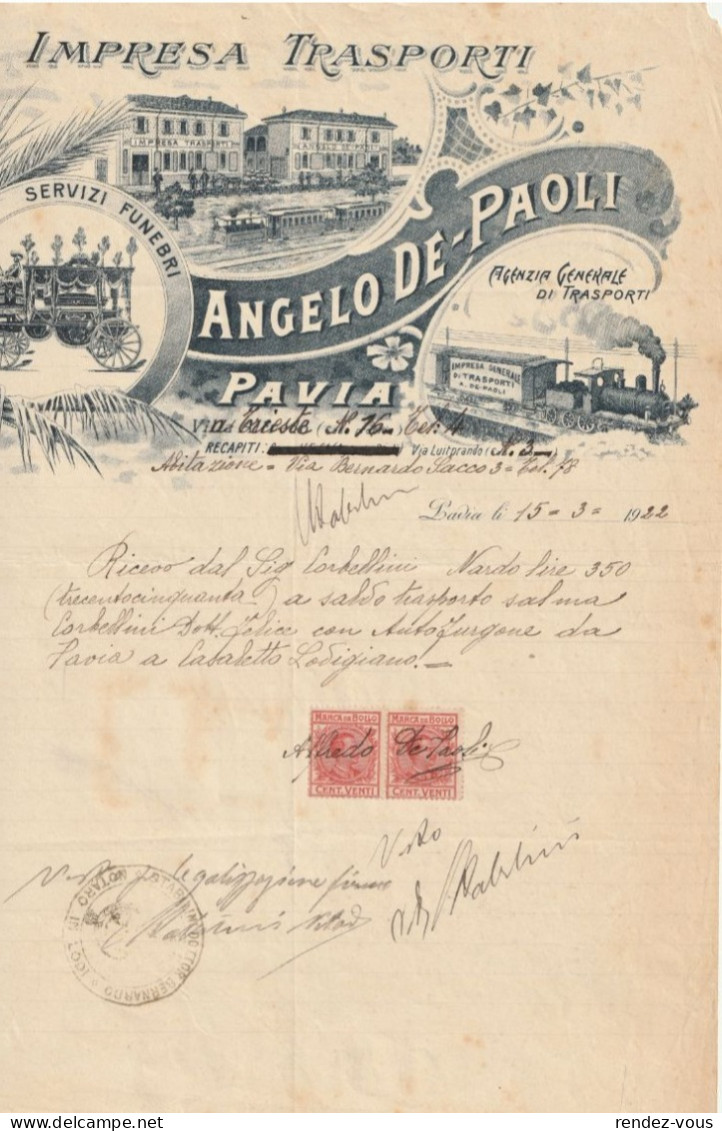 IMPRESA TRASPORTI
IMPRESA TRASPORTI
ANGELO DE-PAOLI
SERVIZI FUNEBRI
ANGELO DE-PAOLI
AGENZIA GENERALE
DI TRASPORTI
IMPRESA GENERALE
DI TRASPORTI
A. DE-PAOLI
PAVIA
Via Trieste (N. 16) Tel. 4
RECAPITI: Via Luitprando (N. 3)
Abitazione = Via Bernardo Sacco 3 = Tel. 78
Pavia li 15 = 3 = 1922
Ricevo dal Sig Corbellini Nardo lire 350
(trecentocinquanta) a saldo trasporto salma
Corbellini Dott. Felice con Autofurgone da
Pavia a Casaletto Lodigiano.
MARCA DA BOLLO MARCA DA BOLLO
Alfredo De Paoli
CENT. VENTI CENT. VENTI
Visto
Visto legalizzazione firme
DOTTOR BERNARDO NOTARO IN LODI
delcampe.net
rendez-vous